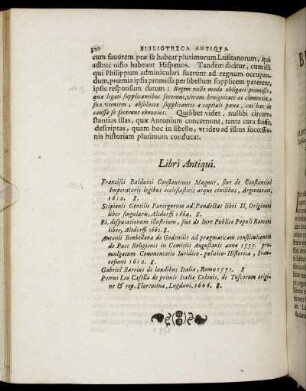 320 BIBLIOTHECA ANTIQVA
eum favorem præ se habeat plurimorum Lusitanorum, qui
adhuc odio habeant Hispanos. Tandem dicitur, cum illi
qui Philippum adminiculari fuerint ad regnum occupan-
dum, præmia ipsis promissa per libellum supplicem peterent,
ipsis responsum datum : Regem nullo modo obligari promissis,
quæ legati supplicantibus fecerint, utrum benignitate ac clementia
sua utentem, absolvere supplicantes a capitali pœna, cui hac de
causa se fecerint obnoxios. Quilibet videt, nullibi circum-
stantias illas, quæ Antonium concernunt, tanta cura fuisse
descriptas, quam hoc in libello, ut ideo ad illius successio-
nis historiam plurimum conducat.
Libri Antiqui.
Francisci Balduini Constantinus Magnus, sive de Constantini
Imperatoris legibus ecclesiasticis atque civilibus, Argentorat,
1612. 8.
Scipionis Gentilis Parergorum ad Pandectas libri II, Originum
liber singularis, Altdorfi 1664. 8.
Ei, disputationum illustrium, sive de Jure Publico Populi Romani
liber, Altdorfi 1661. 8.
Antonii Bombelles de Godentiis ad pragmaticam constitutionem
de Pace Religionis in Comitiis Augustanis anno 1555. pro-
mulgatam Commentatio Juridico-politico-Historica, Fran-
cofurti 1612. 8.
Gabriel Barrius de laudibus Italiæ, Romæ 1571. 8.
Petrus Leo Casella de primis Italiæ Colonis, de Tuscorum origi-
ne & rep. Florentina, Lugduni, 1606. 8.